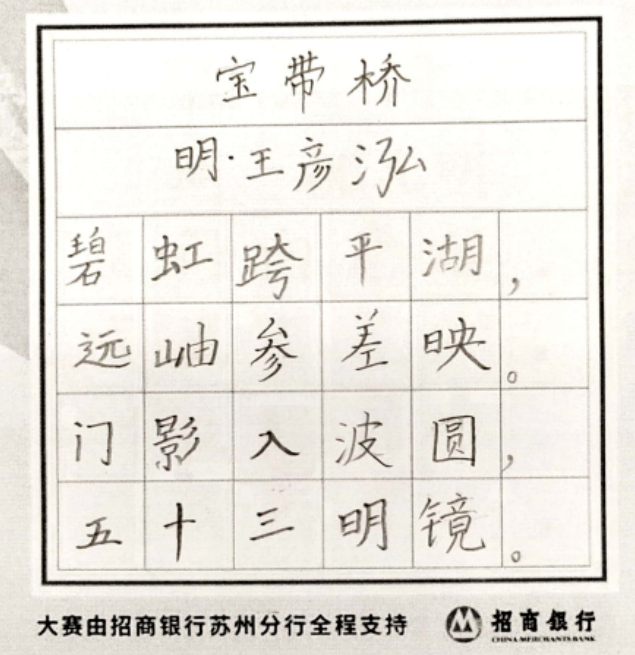 宝带桥
明·王彦泓
碧虹跨平湖，
远岫参差映。
门影入波圆，
五十三明镜。
大赛由招商银行苏州分行全程支持 招商银行
CHINA MERCHANTS BANK